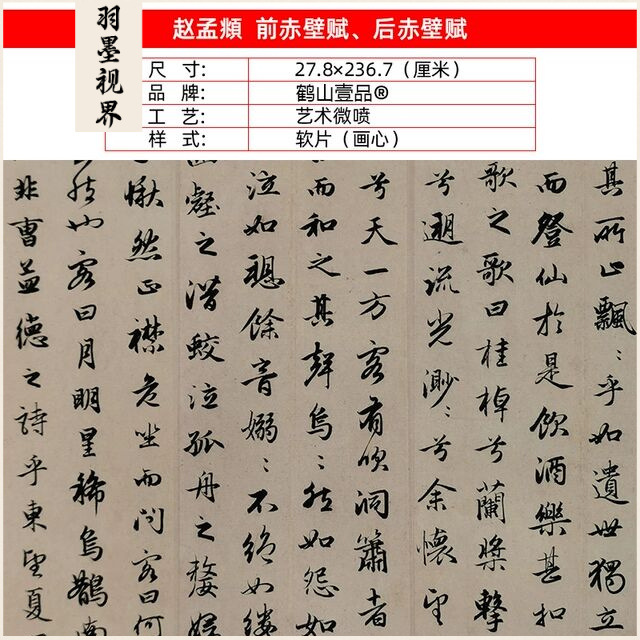 羽墨视界
赵孟頫 前赤壁赋、后赤壁赋
尺 寸: 27.8×236.7（厘米）
品 牌: 鹤山壹品®
工 艺: 艺术微喷
样 式: 软片（画心）
其所止飄〻乎如遺世獨立
而登仙於是飲酒樂甚扣
歌之歌曰桂棹兮蘭槳擊
兮遡流光渺〻兮余懷望
兮天一方客有吹洞簫者
而和之其聲烏〻然如怨如
泣如聴餘音嫋〻不絕如縷
幽壑之潛蛟泣孤舟之嫠婦
愀然正襟危坐而問客曰何
然也客曰月明星稀烏鵲南
非曹孟德之詩乎東望夏